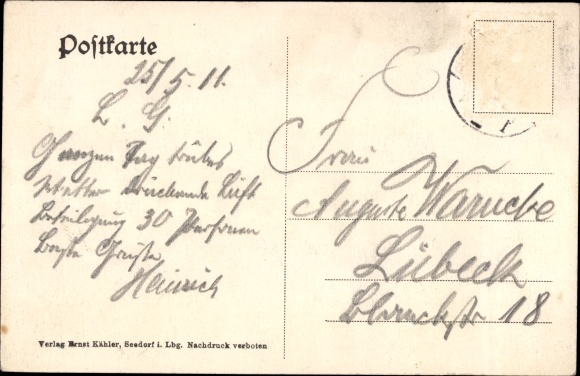 Postkarte
25/5.11.
L. G.
Ganzen Tag trübes
Wetter drückende Luft
Beteiligung 30 Personen
Beste Grüße
Heinrich
Frau
Auguste Warncke
Lübeck
Blanckstr 18
Verlag Ernst Kähler, Seedorf i. Lbg. Nachdruck verboten